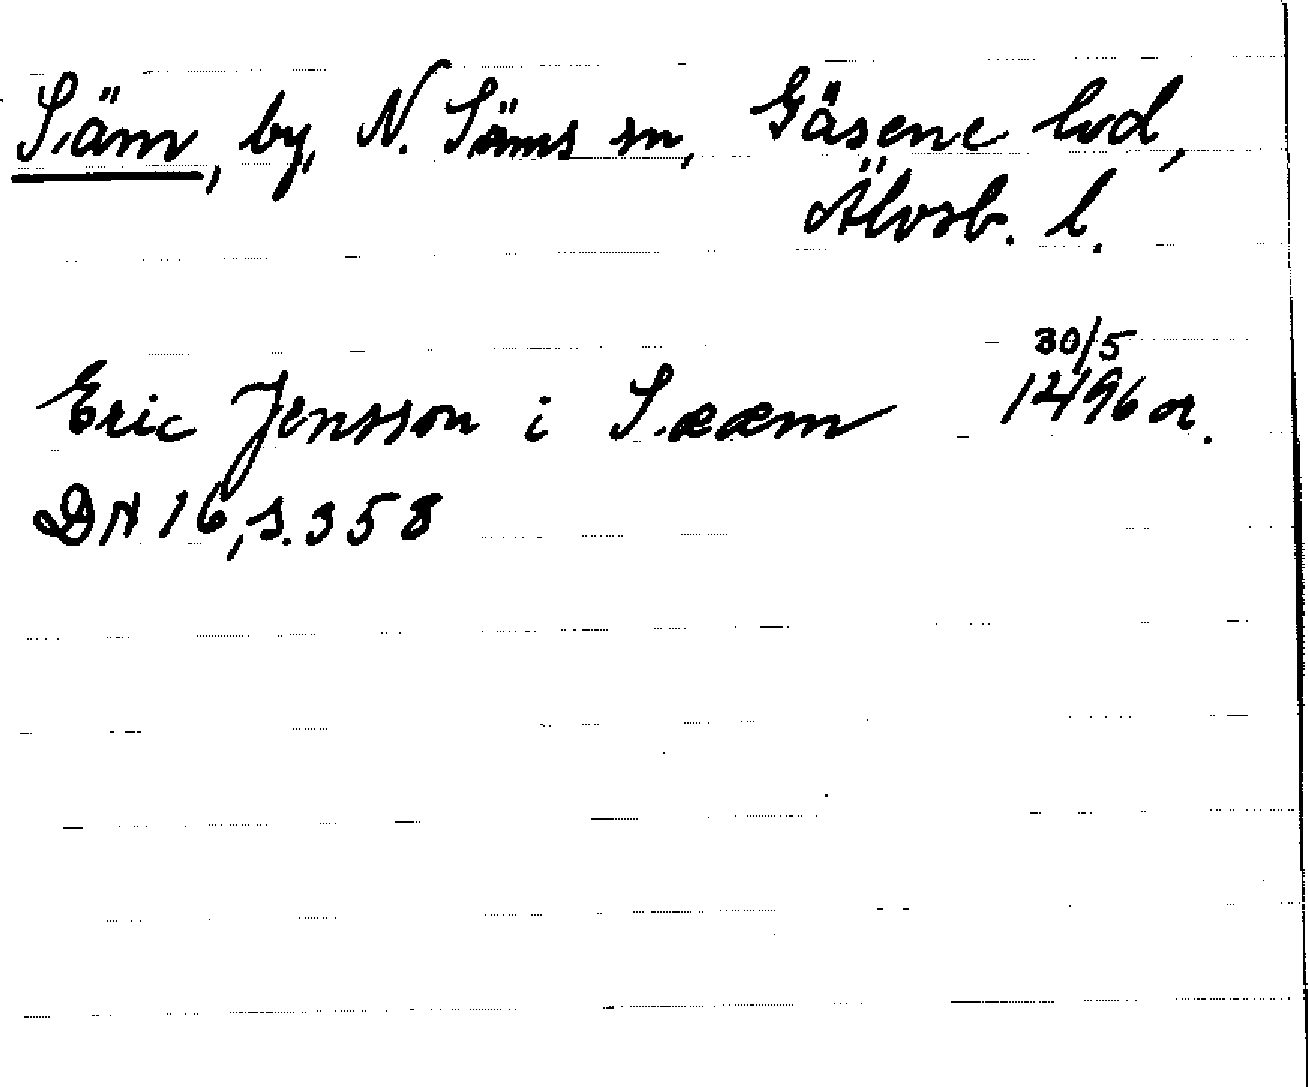 Säm, by, N. Säms sn, Gäsene hd,
Älvsb. l.
30/5
Eric Jensson i Sææm 1496 or.
DN 16, s. 358